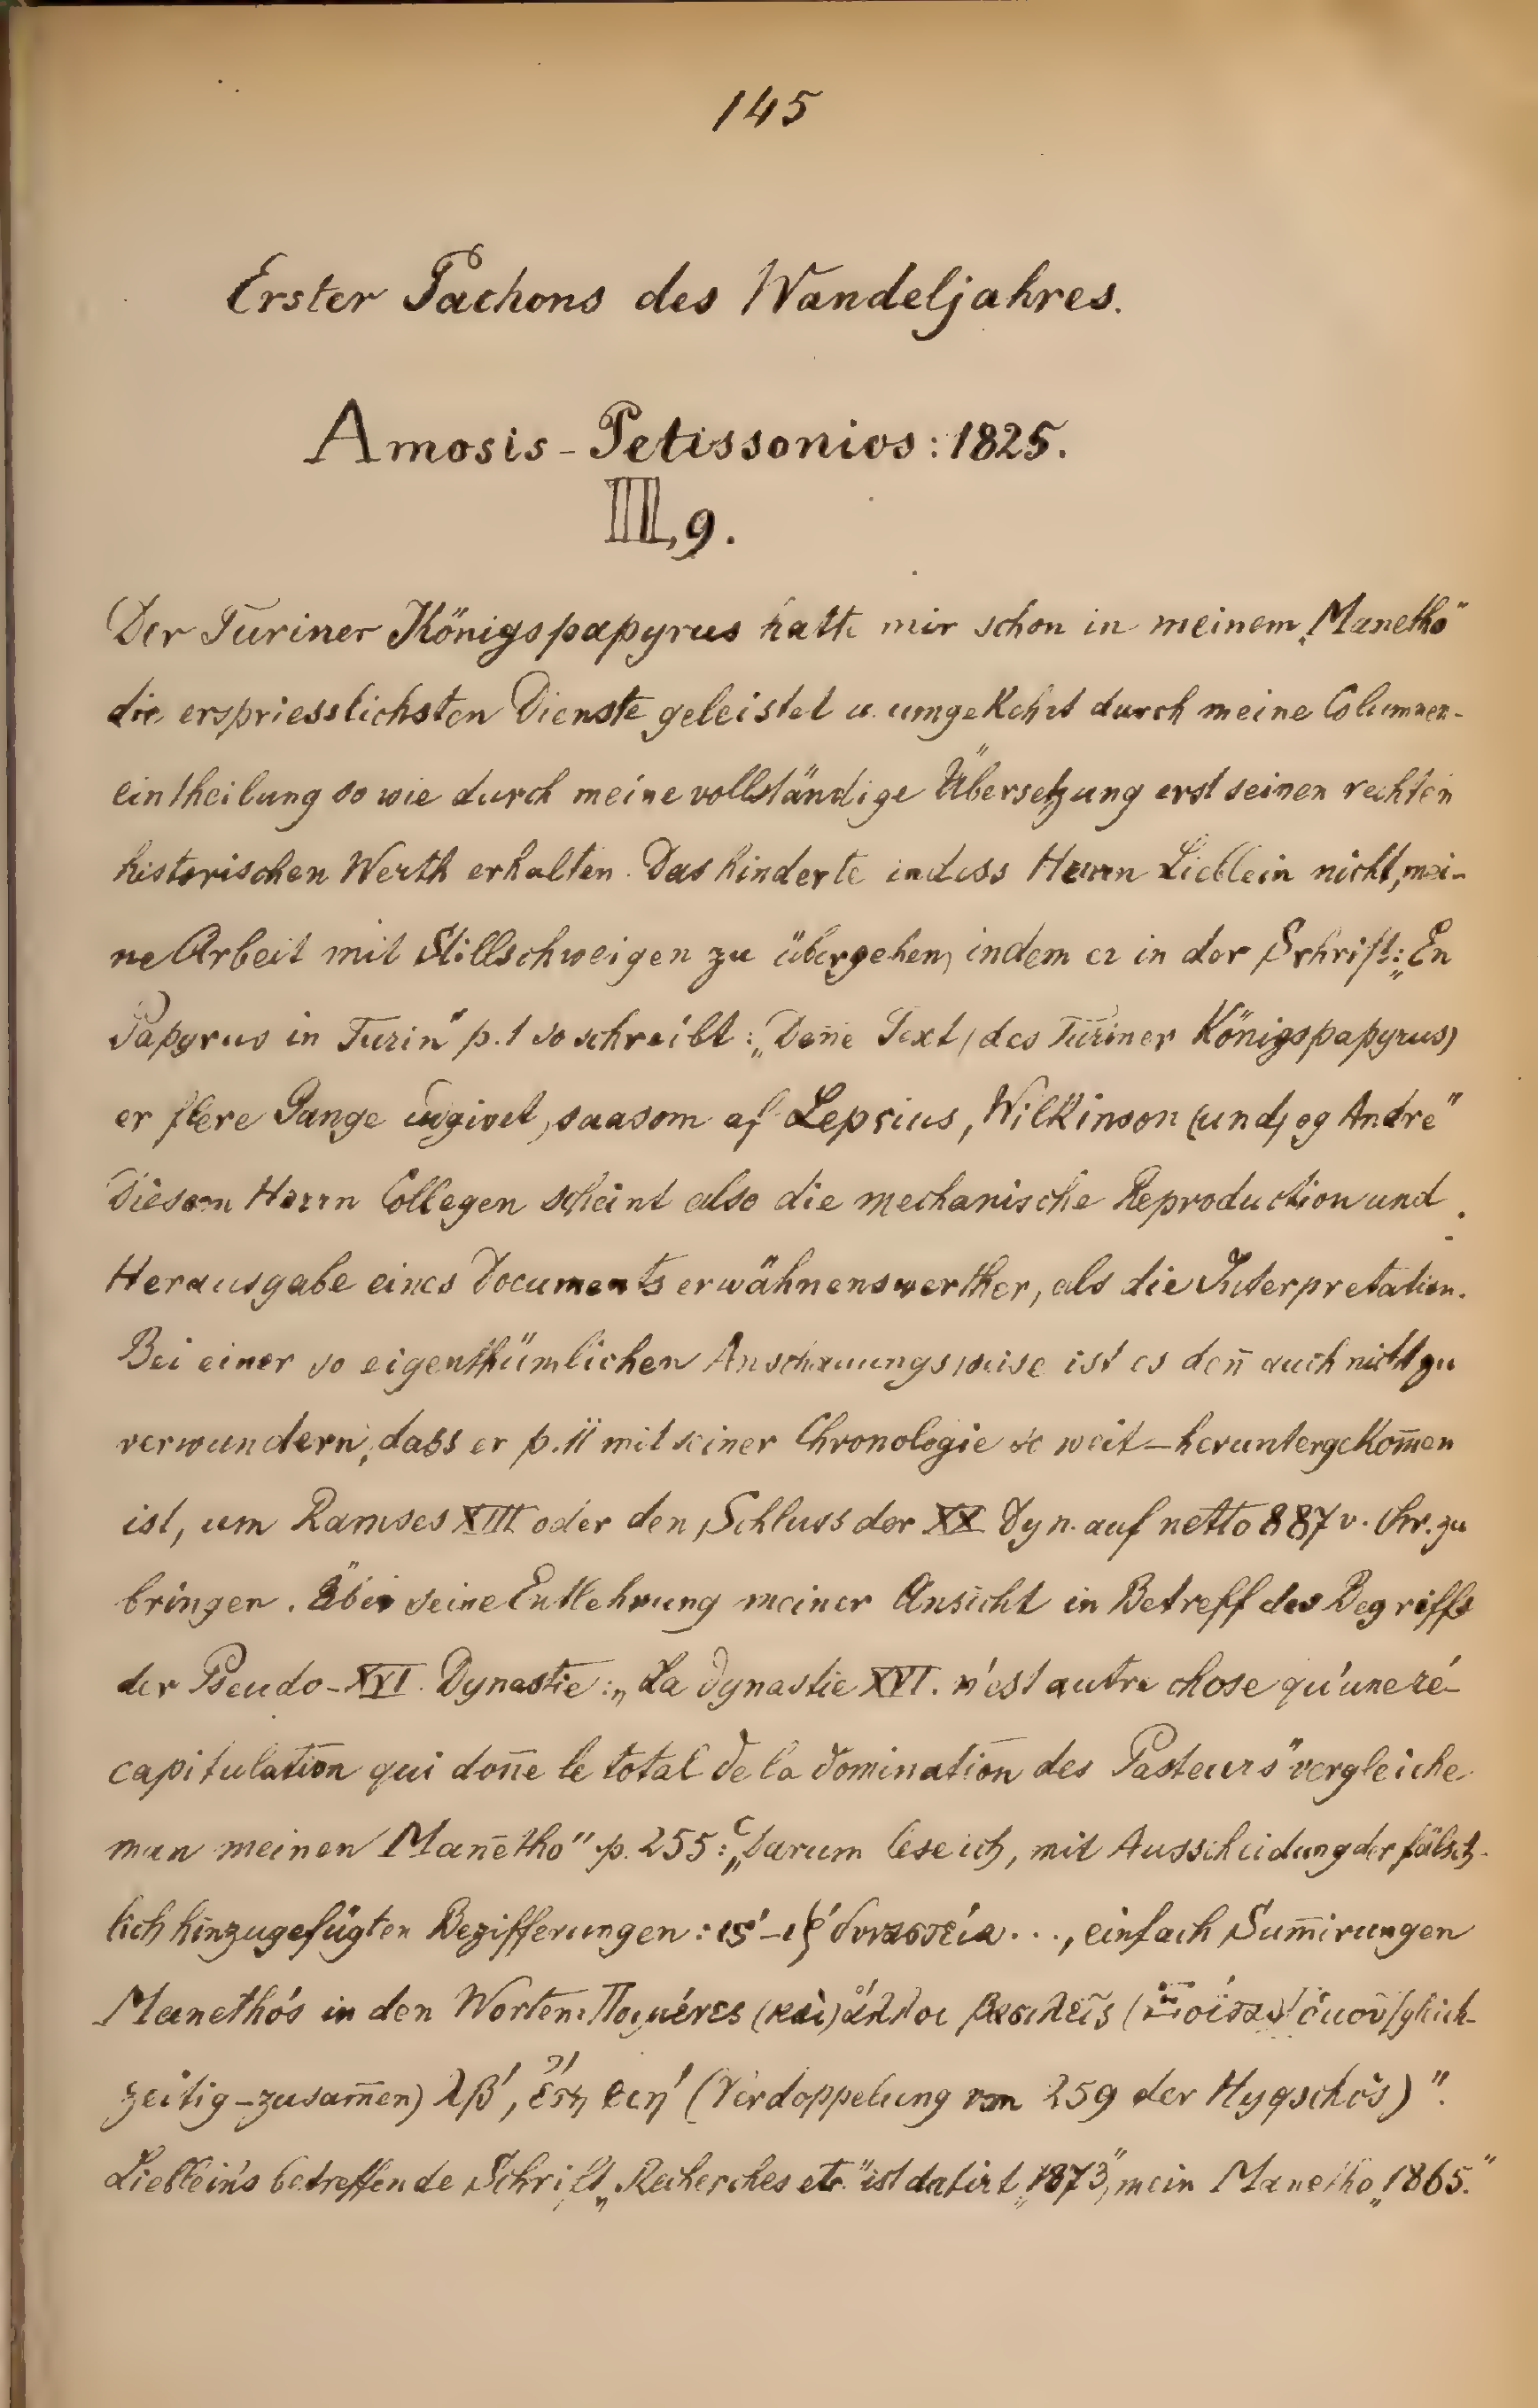 145
Erster Pachons des Wandeljahres.
Amosis - Petissonios: 1825.
III, 9.
Der Turiner Königspapyrus hatte mir schon in meinem „Manethô"
die erspriesslichsten Dienste geleistet u. umgekehrt durch meine Columnen-
eintheilung so wie durch meine vollständige Übersetzung erst seinen rechten
historischen Werth erhalten. Das hinderte indess Herrn Lieblein nicht, mei-
ne Arbeit mit Stillschweigen zu übergehen, indem er in der Schrift: „En
Papyrus in Turin" p. 1 so schreibt: „Deñe Text (des Turiner Königspapyrus)
er flere Gange udgivet, saasom af Lepsius, Wilkinson (und) og Andre"
Diesem Herrn Collegen scheint also die mechanische Reproduction und
Herausgabe eines Documents erwähnenswerther, als die Interpretation.
Bei einer so eigenthümlichen Anschauungsweise ist es deñ auch nicht zu
verwundern, dass er p. 11 mit seiner Chronologie so weit – heruntergekom̄en
ist, um Ramses XIII oder den Schluss der XX Dyn. auf netto 887 v. Chr. zu
bringen. Über seine Entlehnung meiner Ansicht in Betreff des Begriffs
der Pseudo-XVI. Dynastie: „La dynastie XVI. n'est autre chose qu'une ré-
capitulation qui doñe le total de la domination des Pasteurs" vergleiche
man meinen Manetho" p. 255: „Darum lese ich, mit Ausscheidung der fälsch-
lich hinzugefügten Bezifferungen: ις' – ιζ' δυναστεία . . ., einfach Sum̄irungen
Manethós in den Worten: Ποιμένες (καὶ) ἄλλοι βασιλεῖς ὁμοῦ (gleich-
zeitig – zusam̄en) λβ', ἔτη φιη' (Verdoppelung von 259 der Hyqschôs)".
Lieblein's betreffende Schrift „Recherches etc." ist datirt „1873", mein Manetho „1865."